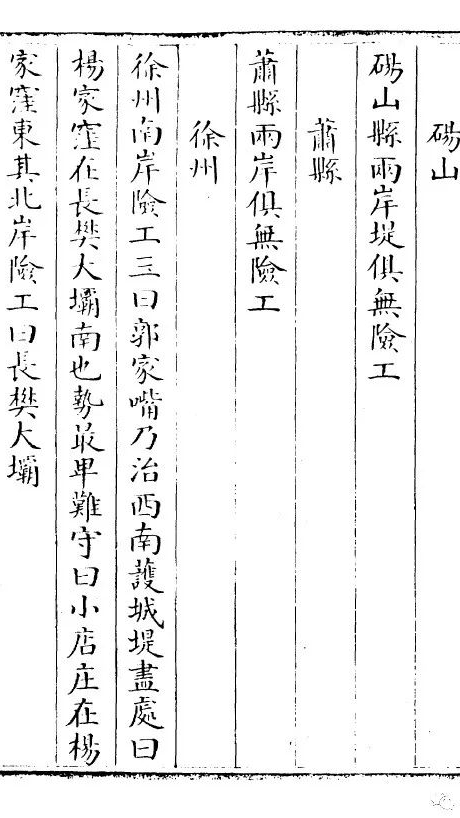 碭山
碭山縣兩岸堤俱無險工
蕭縣
蕭縣兩岸俱無險工
徐州
徐州南岸險工三曰郭家嘴乃治西南護城堤盡處曰
楊家窪在長樊大壩南也勢最卑難守曰小店庄在楊
家窪東其北岸險工曰長樊大壩